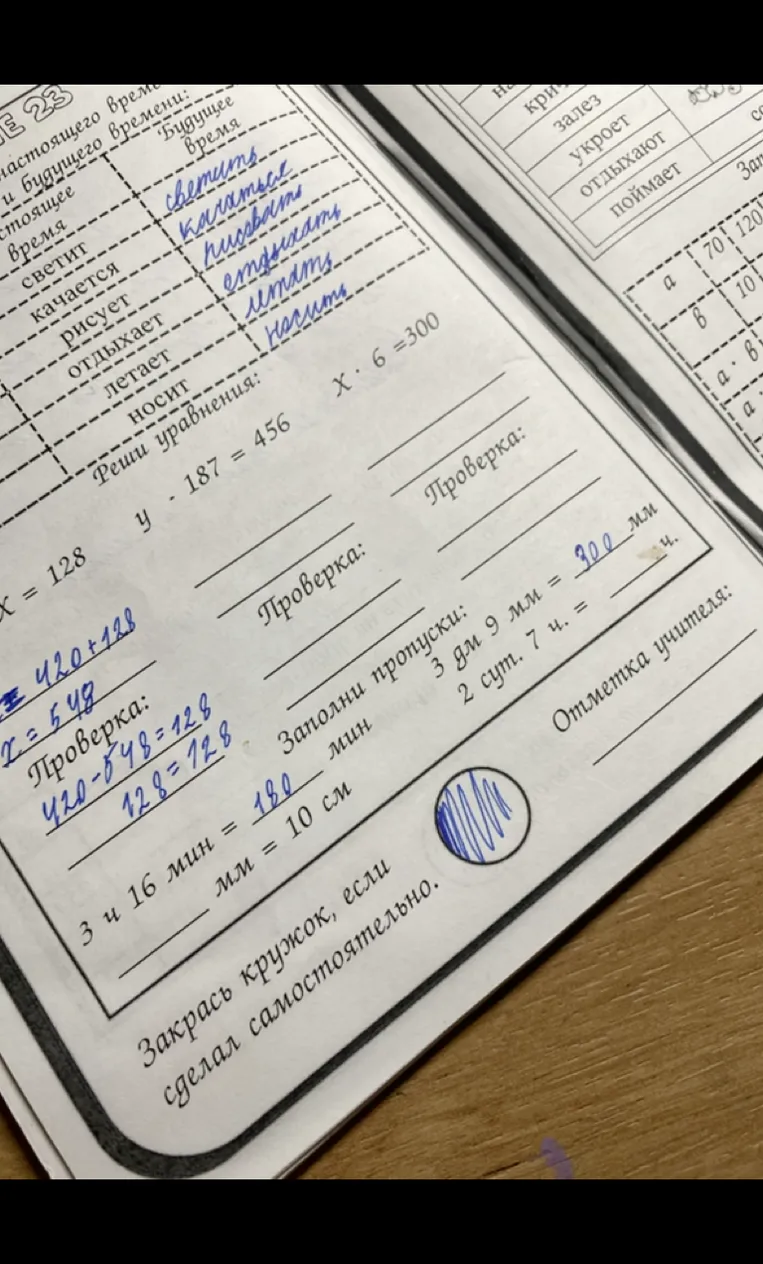 Е 23
настоящего време
и будущего времени:
стоящее
время
Будущее
время
светит
светить
качается
качаться
рисует
рисовать
отдыхает
отдыхать
летает
летать
носит
носить
Реши уравнения:
X = 128
у - 187 = 456
X · 6 =300
420+128
x = 548
Проверка:
Проверка:
Проверка:
420-548=128
128=128
Заполни пропуски:
3 ч 16 мин = 180 мин
3 дм 9 мм = 300 мм
мм = 10 см
2 сут. 7 ч. = ч.
Закрась кружок, если
сделал самостоятельно.
Отметка учителя:
залез
укроет
отдыхают
поймает
а 70 120
в 10
а · в